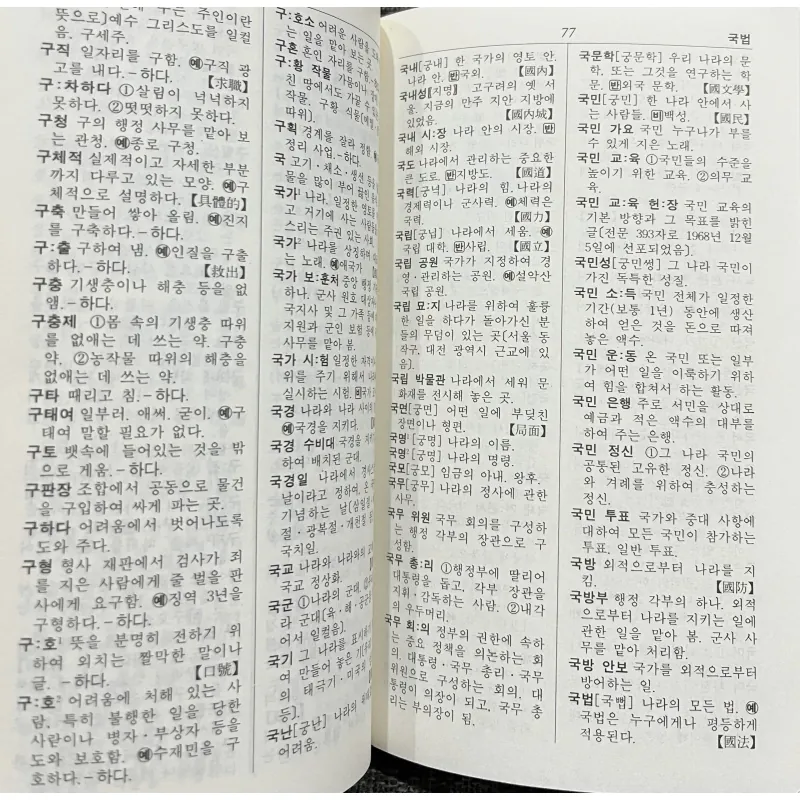 뜻으로]예수 그리스도를 일컬
음. 구세주.
구직 일자리를 구함. 예구직 광
고를 내다.–하다. 【求職】
구:차하다 ①살림이 넉넉하지
못하다. ②떳떳하지 못하다.
구청 구의 행정 사무를 맡아 보
는 관청. 예종로 구청.
구체적 실제적이고 자세한 부분
까지 다루고 있는 모양. 예구
체적으로 설명하다.【具體的】
구축 만들어 쌓아 올림. 예진지
를 구축하다.–하다.
구:출 구하여 냄. 예인질을 구출
하다.–하다. 【救出】
구충 기생충이나 해충 등을 없
앰.–하다.
구충제 ①몸 속의 기생충 따위
를 없애는 데 쓰는 약. 구충
약. ②농작물 따위의 해충을
없애는 데 쓰는 약.
구타 때리고 침.–하다.
구태여 일부러. 애써. 굳이. 예구
태여 말할 필요가 없다.
구토 뱃속에 들어있는 것을 밖
으로 게움.–하다.
구판장 조합에서 공동으로 물건
을 구입하여 싸게 파는 곳.
구하다 어려움에서 벗어나도록
도와 주다.
구형 형사 재판에서 검사가 죄
를 지은 사람에게 줄 벌을 판
사에게 요구함. 예징역 3년을
구형하다.–하다.
구:호¹ 뜻을 분명히 전하기 위
하여 외치는 짤막한 말이나
글. –하다. 【口號】
구:호² 어려움에 처해 있는 사
람, 특히 불행한 일을 당한
사람이나 병자·부상자 등을
도와 보호함. 예수재민을 구
호하다.–하다.
구:호소 어려운 사람을
는 일을 맡아 보는 곳.
구혼 혼인 자리를 구함.
구:황 작물 가뭄이나
친 땅에서도 가꿀 수
작물. 구황 식물
따위).
구획 경계를 잘라 정함.
정리 사업.–하다.
국 고기·채소·생선
물을 많이 부어 끓인
국가¹ 나라. 일정한 영토
고 거기에 사는 사람들
스리는 주권 있는 사회
국가² 나라를 상징하여
는 노래. 예애국가
국가 보:훈처 중앙 행정
하나. 군사 원호 대상
국지사 및 그 가족 등
지원과 군인 보험
사무를 맡아 봄.
국가 시:험 일정한 자격
위를 주기 위해서
실시하는 시험.
국경 나라와 나라 사이의
예국경을 지키다.
국경 수비대 국경을
하여 배치된 군대.
국경일 나라에서 경사
날이라고 정하여, 온
기념하는 날(삼일절·
절·광복절·개천절
국치일.
국교 나라와 나라와의
국교 정상화.
국군 ①나라의 군대.
라 군대(육·해·공군
어서 일컬음).
국기 그 나라를 표시하기
여 만들어 놓은 기
의 태극기·미국의
등].
국난[궁난] 나라의
어려움.
77
국법
국내[궁내] 한 국가의 영토 안.
나라 안. 반국외. 【國內】
국내성[지명] 고구려의 옛 서
울. 지금의 만주 지안 지방에
있었음. 【國內城】
국내 시:장 나라 안의 시장. 반
해외 시장.
국도 나라에서 관리하는 중요한
큰 도로. 반지방도. 【國道】
국력[궁녁] 나라의 힘. 나라의
경제력이나 군사력. 예체력은
국력. 【國力】
국립[궁닙] 나라에서 세움. 예
국립 대학. 반사립. 【國立】
국립 공원 국가가 지정하여 경
영·관리하는 공원. 예설악산
국립 공원.
국립 묘:지 나라를 위하여 훌륭
한 일을 하다가 돌아가신 분
들의 무덤이 있는 곳(서울 동
작구, 대전 광역시 근교에 있
음).
국립 박물관 나라에서 세워 문
화재를 전시해 놓은 곳.
국면[궁면] 어떤 일에 부딪친
장면이나 형편. 【局面】
국명¹[궁명] 나라의 이름.
국명²[궁명] 나라의 명령.
국모[궁모] 임금의 아내. 왕후.
국무[궁무] 나라의 정사에 관한
사무.
국무 위원 국무 회의를 구성하
는 행정 각부의 장관으로 구
성함.
국무 총:리 ①행정부에 딸리어
대통령을 돕고, 각부 장관을
지휘·감독하는 사람. ②내각
의 우두머리.
국무 회:의 정부의 권한에 속하
는 중요 정책을 의논하는 회
의. 대통령·국무 총리·국무
위원으로 구성하는 회의. 대
통령이 의장이 되고, 국무 총
리는 부의장이 됨.
국문학[궁문학] 우리 나라의 문
학. 또는 그것을 연구하는 학
문. 반외국 문학. 【國文學】
국민[궁민] 한 나라 안에서 사
는 사람들. 비백성. 【國民】
국민 가요 국민 누구나가 부를
수 있게 지은 노래.
국민 교:육 ①국민들의 수준을
높이기 위한 교육. ②의무 교
육.
국민 교:육 헌:장 국민 교육의
기본 방향과 그 목표를 밝힌
글[전문 393자로 1968년 12월
5일에 선포되었음].
국민성[궁민썽] 그 나라 국민이
가진 독특한 성질.
국민 소:득 국민 전체가 일정한
기간(보통 1년) 동안에 생산
하여 얻은 것을 돈으로 따져
놓은 액수.
국민 운:동 온 국민 또는 일부
가 어떤 일을 이룩하기 위하
여 힘을 합쳐서 하는 활동.
국민 은행 주로 서민을 상대로
예금과 적은 액수의 대부를
하여 주는 은행.
국민 정신 ①그 나라 국민의
공통된 고유한 정신. ②나라
와 겨레를 위하여 충성하는
정신.
국민 투표 국가와 중대 사항에
대하여 모든 국민이 참가하는
투표. 일반 투표.
국방 외적으로부터 나라를 지
킴. 【國防】
국방부 행정 각부의 하나. 외적
으로부터 나라를 지키는 일에
관한 일을 맡아 봄. 군사 사
무를 맡아 처리함.
국방 안보 국가를 외적으로부터
방어하는 일.
국법[국뻡] 나라의 모든 법. 예
국법은 누구에게나 평등하게
적용된다. 【國法】